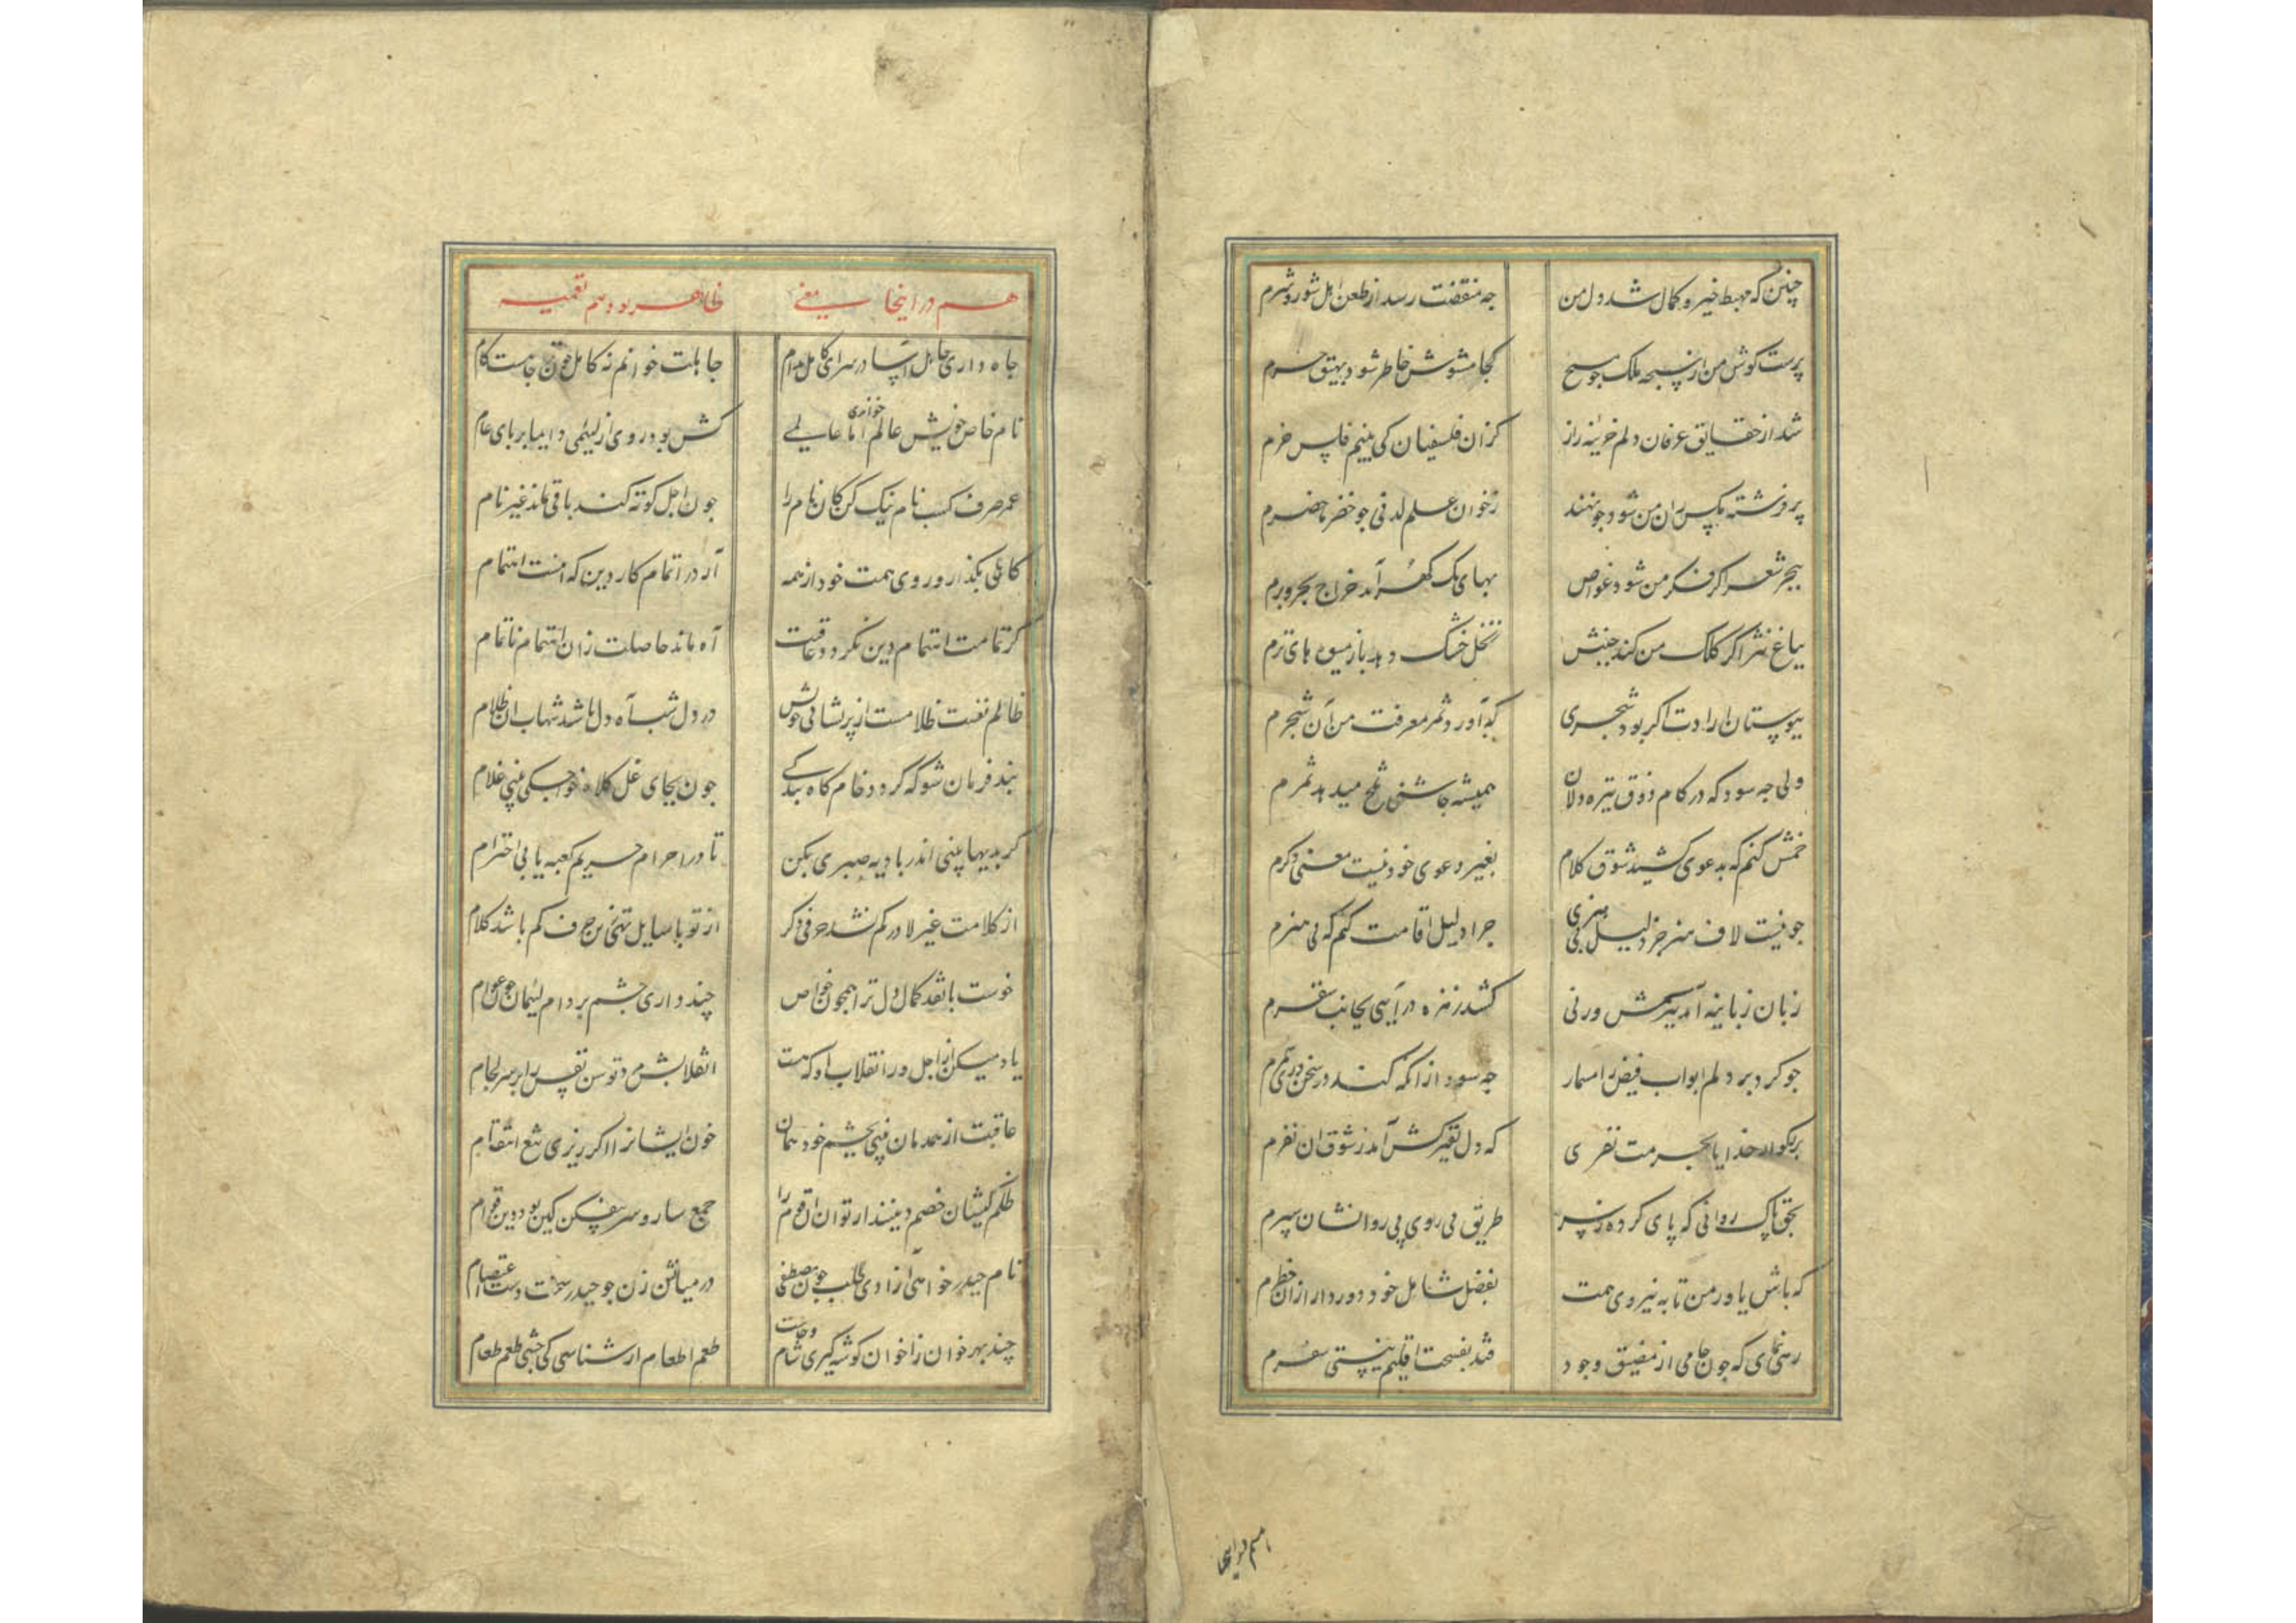 چنین که مهبط خیر و کمال شد دل من جه منقصت رسد از طعن اهل شور و شرم
پرست کوش من از سبحه ملک جو مسیح کجا مشوش خاطر شود نهیق خرم
شد از حقایق عرفان دلم خزینه راز کزان فلسفیان کی بنیم فلس خرم
پر فرشته مکس ران من شود جو نهند زخوان علم لدنی جو خضر ماحضرم
ببحر شعر اکر فکر من شود غواص بهای یک کهر آمد خراج بحر و برم
بباغ نثر اکر کلک من کند جنبش نخل خشک دهد بار میوه های ترم
ببوستان ارادت اکر بود شجری که آورد ثمر معرفت من آن شجرم
ولی جه سود که در کام ذوق تیره دلان همیشه جاشنی تلخ میدهد ثمرم
خمش کنم که بدعوی کشید شوق کلام بغیر دعوی خود نیست معنی دکرم
جو نیست لاف هنر جز دلیل بی هنری جرا دلیل اقامت کنم که بی هنرم
زبان زبانیه آمد کشد زمزه در بجانب سقرم
جو کرد بر دلم ابواب فیض را مسمار جه سود از انکه کند در سخن دری
بزرکوار خدایا بحرمت نفری که دل آمد ز شوق ان نفرم
بحق پاک روانی که پای کرده ز سر طریق می روی پی روانشان سپرم
که باش یاور من تا به نیروی همت بفضل شامل خود دور دار ازان خطرم
رهی نمای که جون جامی از مضیق وجود فتد بفسحت اقلیم نیستی سفرم
هم در اینجا
هم در اینجا بمعنی ظاهر بود رسم تعمیه
جاه داری جاهل آسا در سرای کامل مدام جاهلت خوانم نه کامل جون جاهست کام
نام خاص خویش عالم خواندی اما عالمی کش بود روی از لئیمی دایما بر پای عام
عمر صرف کسب نام نیک کن کان نام را جون اجل کوته کند باقی نماند غیر نام
کاهلی بکذار و روی همت خود از همه آر در اتمام کار دین که اینست اهتمام
کر تمامت اهتمام دین نکردد عاقبت آه ماند حاصلت زان اهتمام ناتمام
ظالم نفست ظلامست از پریشانی خویش در دل شب آه دل باشد شهاب ان ظلام
بند فرمان شو که کردد خام کاه بندکی جون بجای غل کلاه خواجکی بینی غلام
کر بدیها بینی اندر بادیه صبری بکن تا در احرام حریم کعبه یابی احترام
از کلامت غیر لا در کم نشد حرفی دکر از تو با سایل تهی زین حرف کم باشد کلام
خوست با نقد کمال دل ترا همجون خواص چند داری جشم بر دام لئیمان جون عوام
یاد میکن از اجل ور انقلاب او که هست انقلابش مر توسن نفس را بر سر لجام
عاقبت از همدمان بینی بجشم خود همان خون ایشانرا اکر ریزی بتیغ انتقام
ظلم کیشان خصم دینند ار توان اقوام را جمع سار و سر بیفکن کین بود دین قوام
نام حیدر خواهی آزادی طلب جون مصطفی در میانش زن جو حیدر سخت دست اعتصام
چند بهر خوان ز اخوان کوشه کیری چاشت و شام طعم اطعام ار شناسی کی چشی طعم طعام